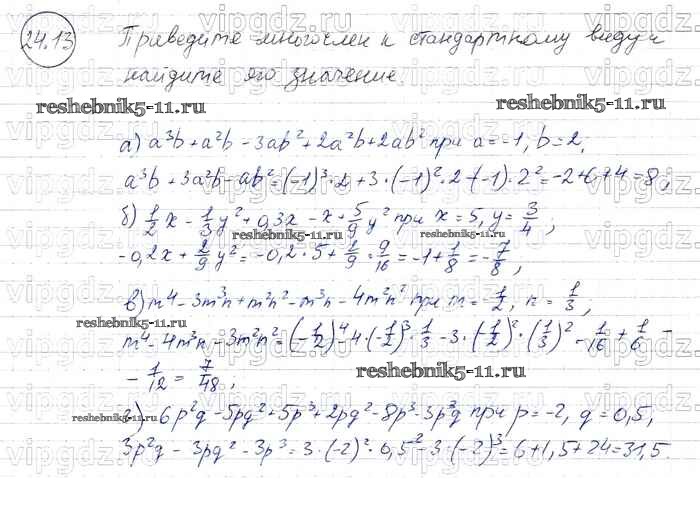 24.13 Приведите многочлен к стандартному виду и
найдите его значение.
reshebnik5-11.ru reshebnik5-11.ru
а) a³b + a²b - 3ab² + 2a²b + 2ab² при a = -1, b = 2;
a³b + 3a²b - ab² = (-1)³·2 + 3·(-1)²·2 - (-1)·2² = -2+6+4=8;
б) 1/2 x - 1/3 y² + 0,3x - x + 5/9 y² при x = 5, y = 3/4;
reshebnik5-11.ru reshebnik5-11.ru
-0,2x + 2/9 y² = -0,2·5 + 2/9 · 9/16 = -1 + 1/8 = -7/8;
в) m⁴ - 3m³n + m²n² - m³n - 4m²n² при m = -1/2, n = 1/3;
reshebnik5-11.ru
m⁴ - 4m³n - 3m²n² = (-1/2)⁴ - 4·(-1/2)³·1/3 - 3·(-1/2)²·(1/3)² = 1/16 + 1/6 -
- 1/12 = 7/48;
reshebnik5-11.ru
reshebnik5-11.ru
г) 6p²q - 5pq² + 5p³ + 2pq² - 8p³ - 3p²q при p = -2, q = 0,5,
3p²q - 3pq² - 3p³ = 3·(-2)²·0,5 - 3·(-2)³ = 6+1,5+24=31,5.
vipgdz.ru